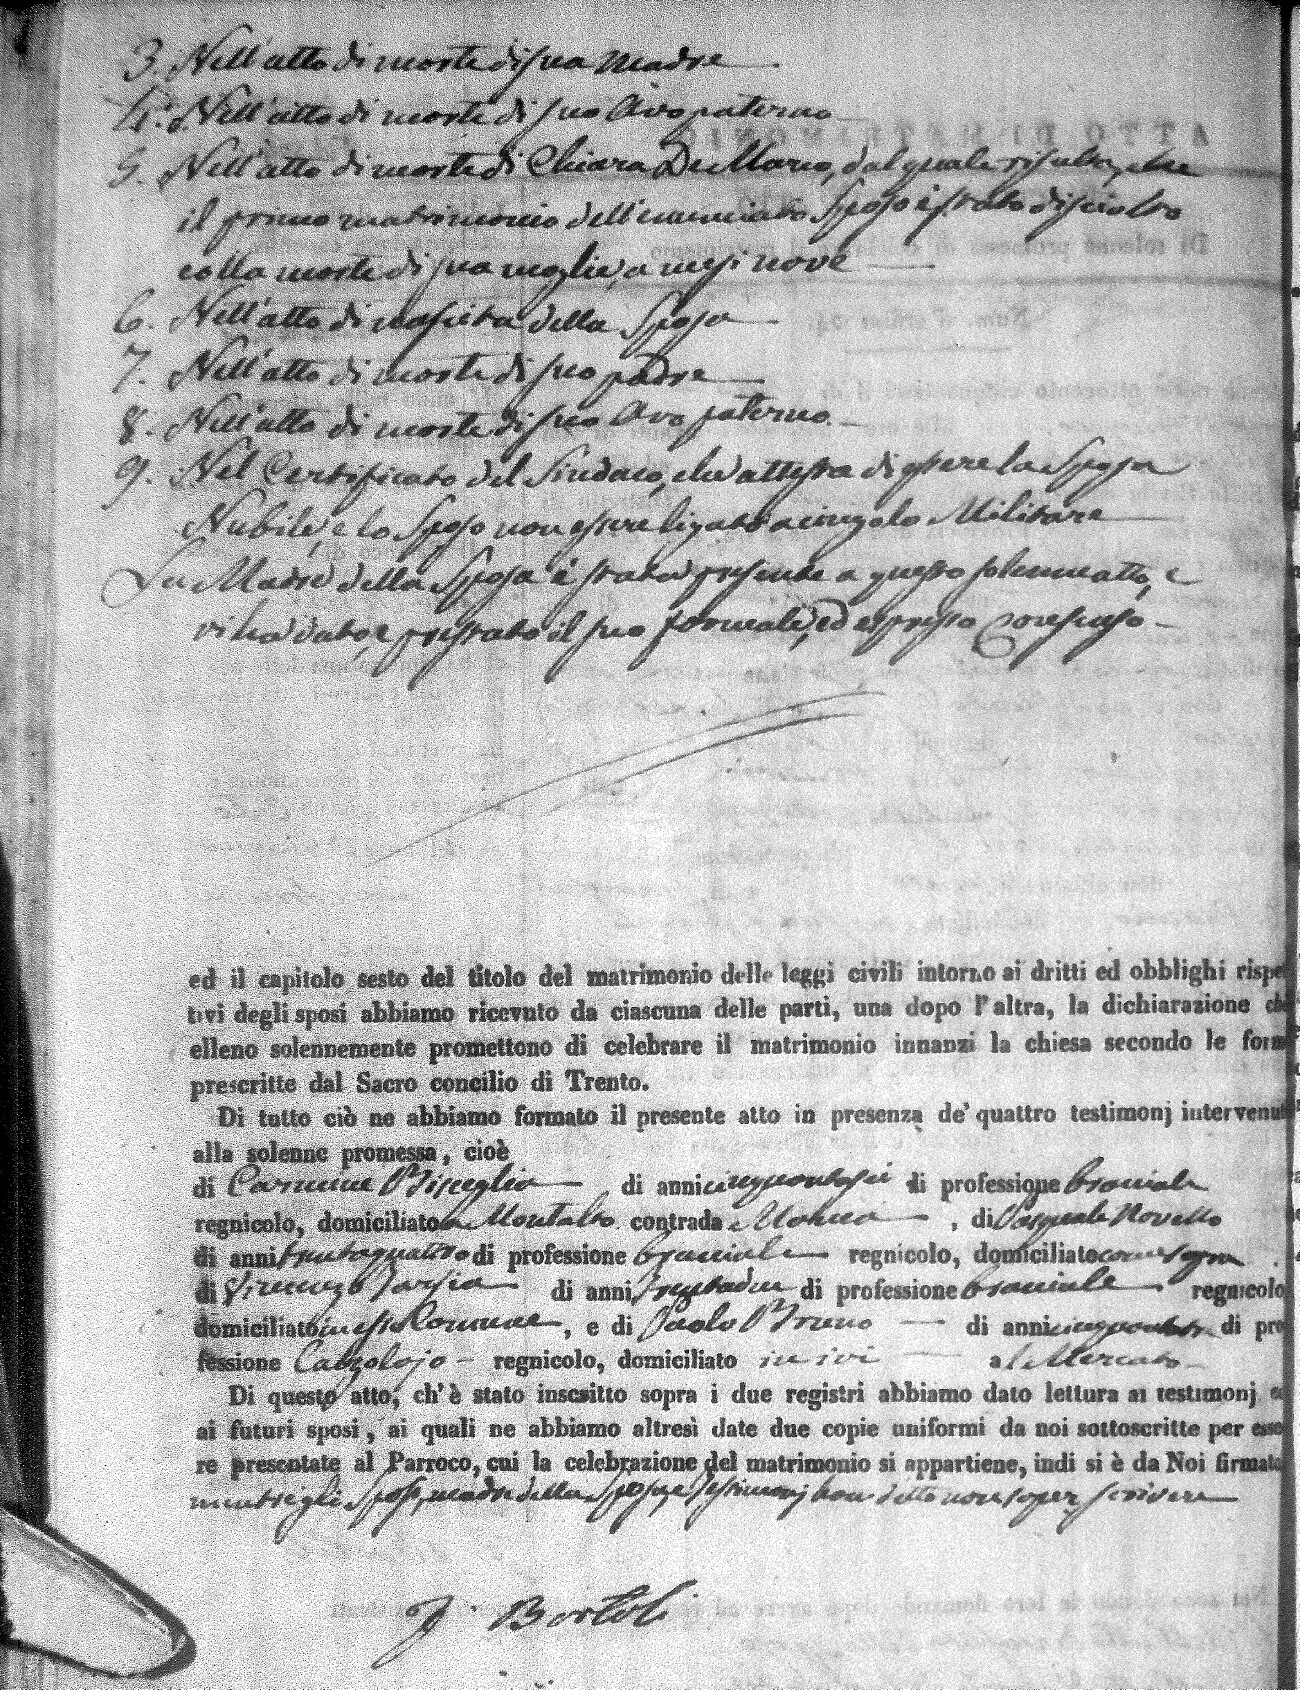 3. Nell'atto di morte di sua Madre
4. Nell'atto di morte di suo Avo paterno
5. Nell'atto di morte di Chiara De Marco, dal quale risulta, che
il primo matrimonio dell'enunciato Sposo è stato disciolto
colla morte di sua moglie, a mesi nove
6. Nell'atto di nascita della Sposa
7. Nell'atto di morte di suo padre
8. Nell'atto di morte di suo Avo paterno.
9. Nel Certificato del Sindaco, che attesta di essere la Sposa
Nubile, e lo Sposo non essere ligato a cingolo Militare
La Madre della Sposa è stata presente a questo solenne atto, e
vi ha dato, e prestato il suo formale, ed espresso Consenso
ed il capitolo sesto del titolo del matrimonio delle leggi civili intorno ai dritti ed obblighi rispe
tivi degli sposi abbiamo ricevuto da ciascuna delle parti, una dopo l'altra, la dichiarazione che
elleno solennemente promettono di celebrare il matrimonio innanzi la chiesa secondo le form
prescritte dal Sacro concilio di Trento.
Di tutto ciò ne abbiamo formato il presente atto in presenza de' quattro testimonj intervenut
alla solenne promessa, cioè
di Carmine Bisceglia di anni cinquantasei di professione bracciale
regnicolo, domiciliato a Montalto contrada , di Pasquale Novello
di anni trentaquattro di professione bracciale regnicolo, domiciliato come sopra
di Vincenzo Tarsia di anni trentadue di professione bracciale regnicolo
domiciliato in esso Comune, e di Paolo Bruno di anni di pro
fessione Calzolajo regnicolo, domiciliato in ivi al Mercato
Di questo atto, ch'è stato inscsitto sopra i due registri abbiamo dato lettura ai testimonj e
ai futuri sposi, ai quali ne abbiamo altresì date due copie uniformi da noi sottoscritte per esse
re presentate al Parroco, cui la celebrazione del matrimonio si appartiene, indi si è da Noi firmato
mentre gli Sposi, madre della Sposa, e Testimonj han detto non saper scrivere
Bortoli